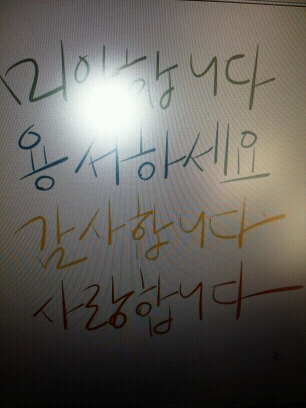 미안합니다
용서하세요
감사합니다
사랑합니다